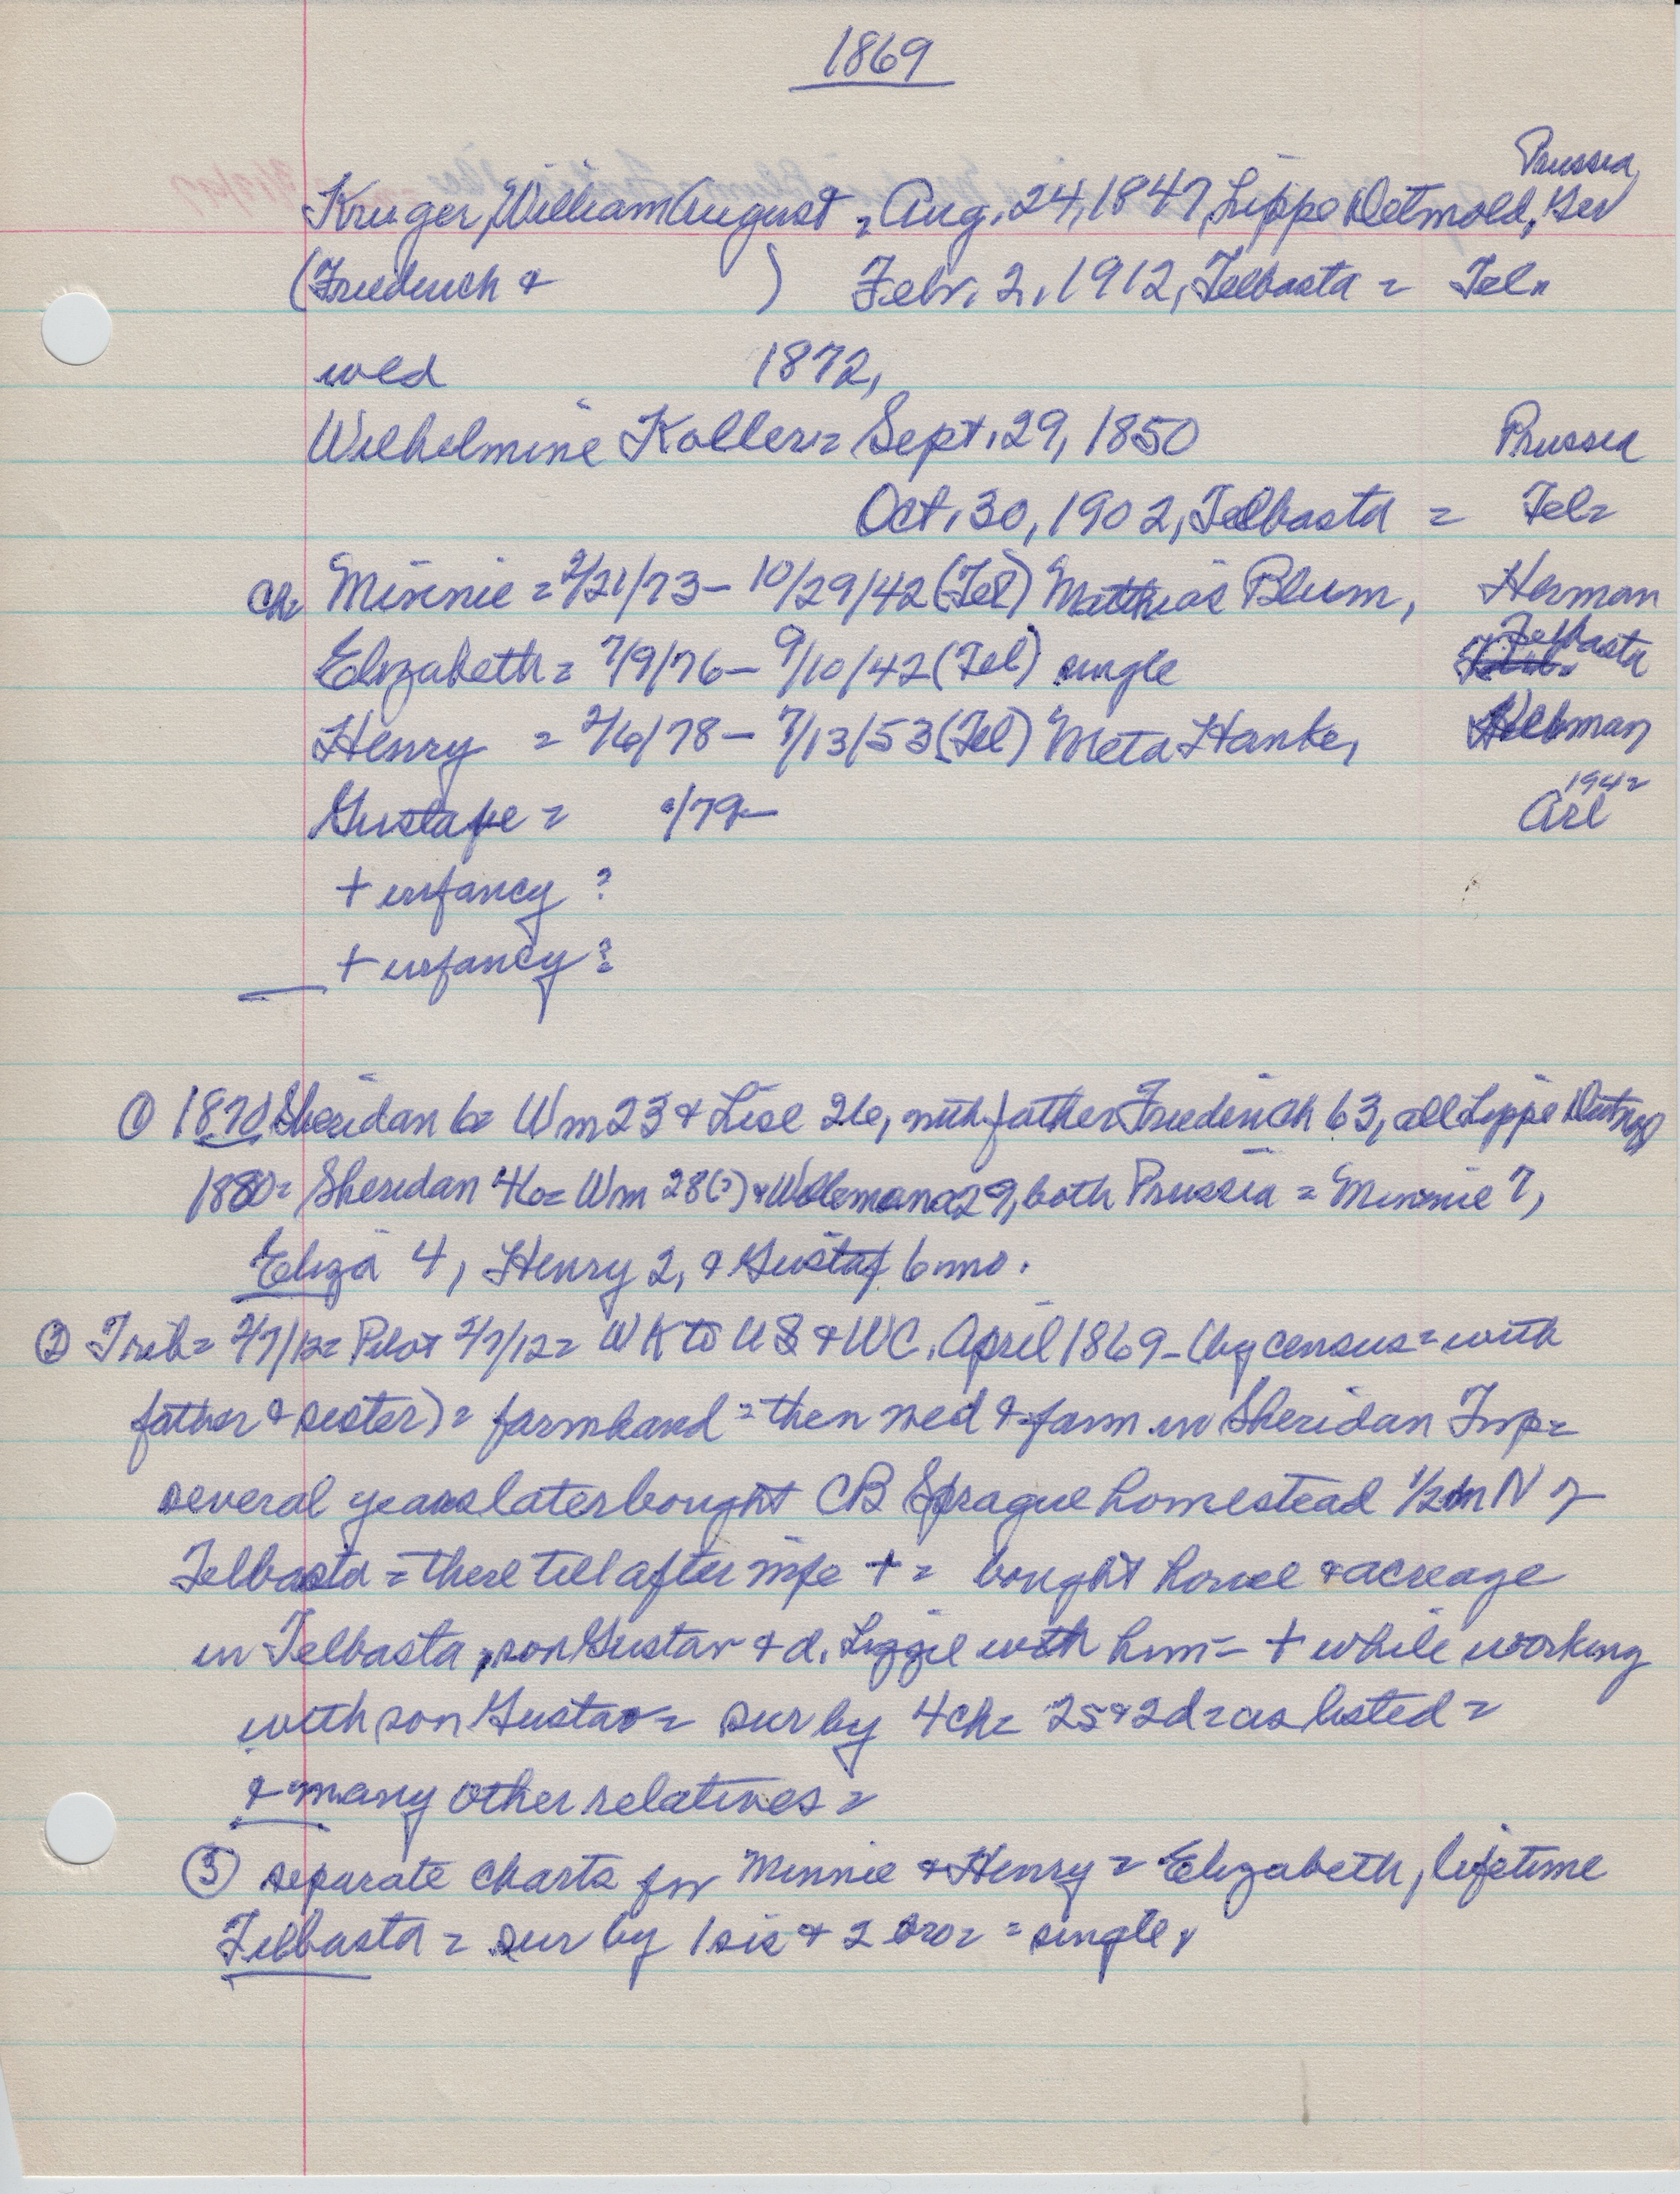 1869
Prussia,
Kruger, William August = Aug. 24, 1847, Lippe Detmold, Ger
(Friederich & ) Febr. 2, 1912, Telbasta = Tel=
wed 1872,
Wilhelmine Koller = Sept. 29, 1850 Prussia
Oct. 30, 1902, Telbasta = Tel=
Ch= Minnie = 2/21/73 - 10/29/42 (Tel) Matthias Blum, Herman
Elizabeth = 7/9/76 - 9/10/42 (Tel) single Telbasta
Henry = 2/6/78 - 7/13/53 (Tel) Meta Hanke, Herman
1942
Gustave = /79- Arl
+ infancy ?
+ infancy ?
① 1870 Sheridan 6= Wm 23 & Lise 26, with father Friederich 63, all Lippe Detmold
1880= Sheridan 46= Wm 28(?) & 29, both Prussia = Minnie 7,
Eliza 4, Henry 2, & Gustaf 6 mo.
② Trib= 2/7/12= Pilot 2/7/12= WK to US & WC. April 1869 - (by census = with
father & sister) = farmhand = then wed & farm in Sheridan Twp=
several years later bought CB Sprague homestead 1/2 m N of
Telbasta = there till after wife + = bought house & acreage
in Telbasta, son Gustav & d. Lizzie with him = + while working
with son Gustav = sur by 4 ch= 2s & 2d = as listed =
& many other relatives =
③ separate charts for Minnie & Henry = Elizabeth, lifetime
Telbasta = sur by 1 sis & 2 bro= = single,